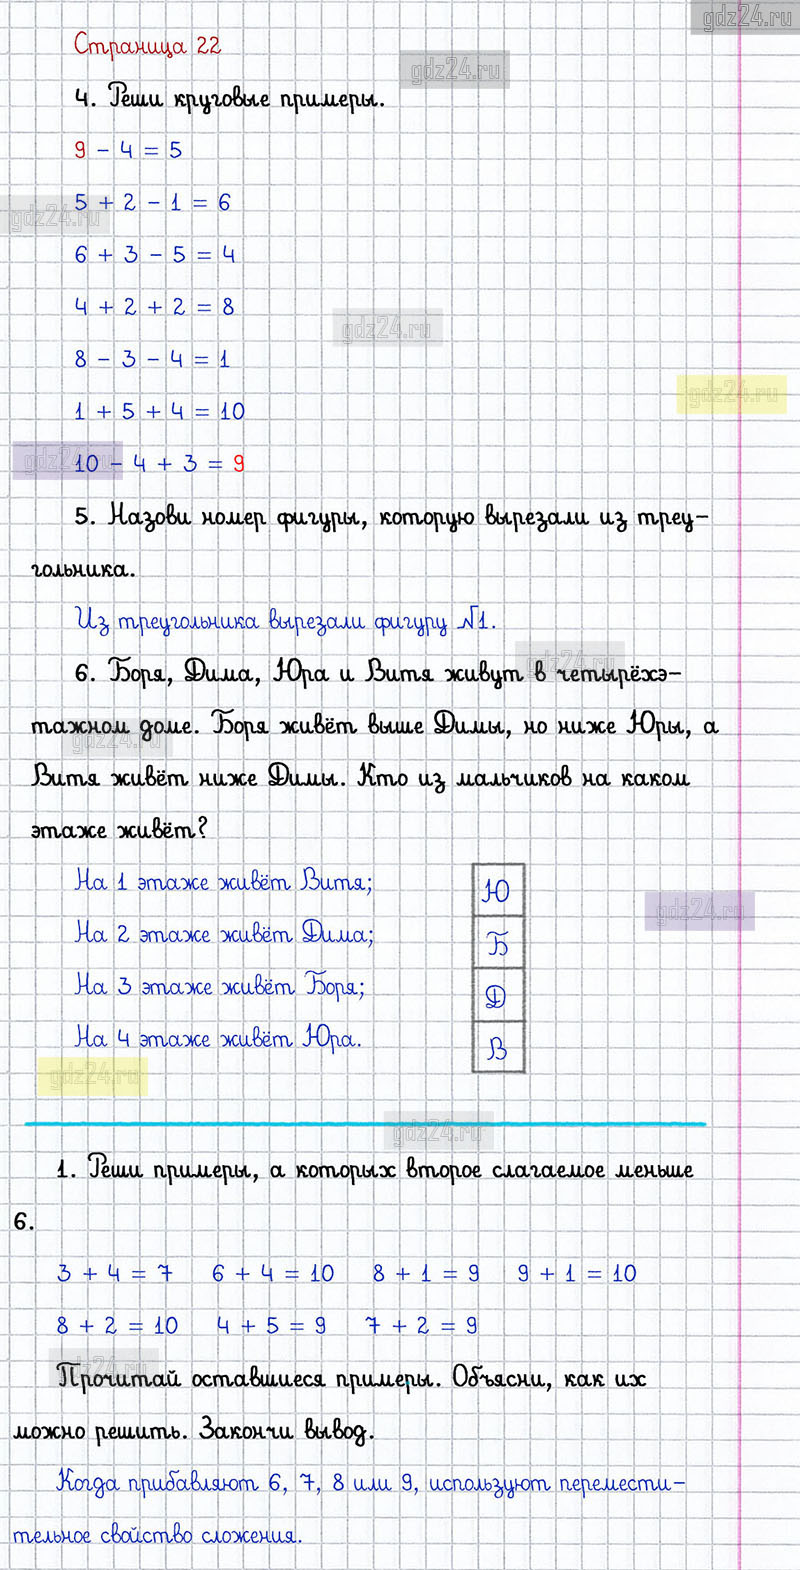 gdz24.ru
Страница 22
gdz24.ru
4. Реши круговые примеры.
9 - 4 = 5
5 + 2 - 1 = 6
gdz24.ru
6 + 3 - 5 = 4
4 + 2 + 2 = 8
gdz24.ru
8 - 3 - 4 = 1
gdz24.ru
1 + 5 + 4 = 10
gdz24.ru
10 - 4 + 3 = 9
5. Назови номер фигуры, которую вырезали из треу-
гольника.
Из треугольника вырезали фигуру №1.
gdz24.ru
6. Боря, Дима, Юра и Витя живут в четырёхэ-
тажном доме. Боря живёт выше Димы, но ниже Юры, а
gdz24.ru
Витя живёт ниже Димы. Кто из мальчиков на каком
этаже живёт?
На 1 этаже живёт Витя;
Ю
gdz24.ru
На 2 этаже живёт Дима;
Б
На 3 этаже живёт Боря;
Д
На 4 этаже живёт Юра.
В
gdz24.ru
gdz24.ru
1. Реши примеры, а которых второе слагаемое меньше
6.
3 + 4 = 7 6 + 4 = 10 8 + 1 = 9 9 + 1 = 10
8 + 2 = 10 4 + 5 = 9 7 + 2 = 9
gdz24.ru
Прочитай оставшиеся примеры. Объясни, как их
можно решить. Закончи вывод.
Когда прибавляют 6, 7, 8 или 9, используют перемести-
тельное свойство сложения.